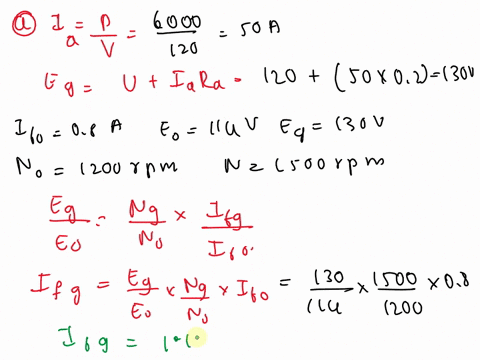 a I_a = P/V = 6000/120 = 50 A
Eg = U + IaRa = 120 + (50 × 0.2) = 130V
Ifo = 0.8 A   Eo = 114 V   Eg = 130 V
No = 1200 rpm   N = 1500 rpm
Eg/Eo = Ng/No × Ifg/Ifo.
Ifg = Eg/Eo × Ng/No × Ifo = 130/114 × 1500/1200 × 0.8
Ifg = 1.1